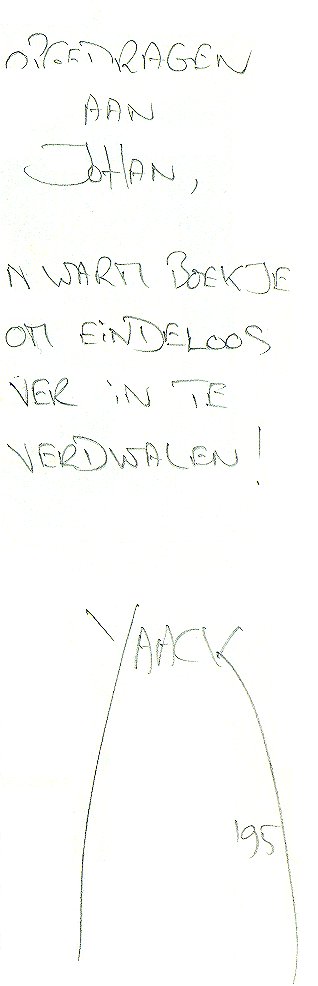 OPGEDRAGEN
AAN
JOHAN,
N WARM BOEKJE
OM EiNDELOOS
VER iN TE
VERDWALEN!
YAACK
'95